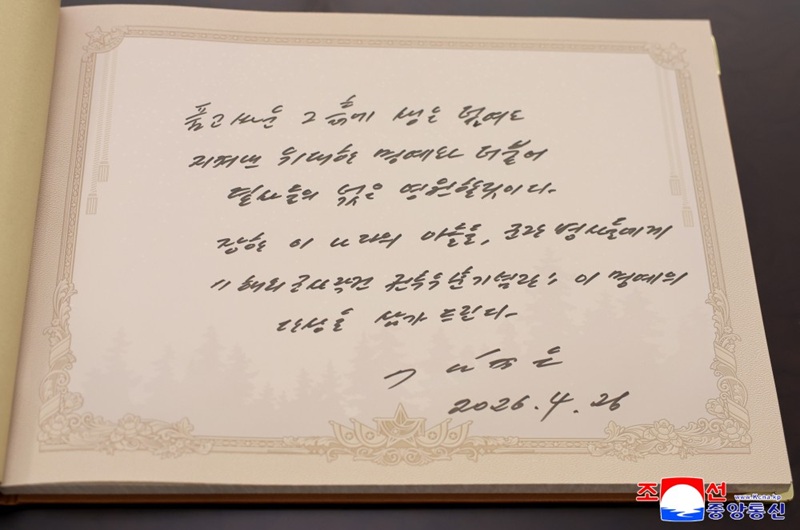 품고 싸운 그 흙에 생은 덮여도
지켜낸 위대한 명예와 더불어
렬사들의 넋은 영원할것이다.
장한 이 나라의 아들들, 군관, 병사들에게
《해외군사작전 전투위훈기념관》 이 명예의
단상을 삼가 드린다.
김정은
2026.4.26
조선
www.kcna.kp
중앙통신